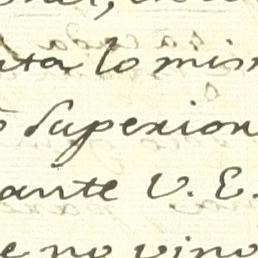 lo mis
Superior
ante V. E.
e no vino